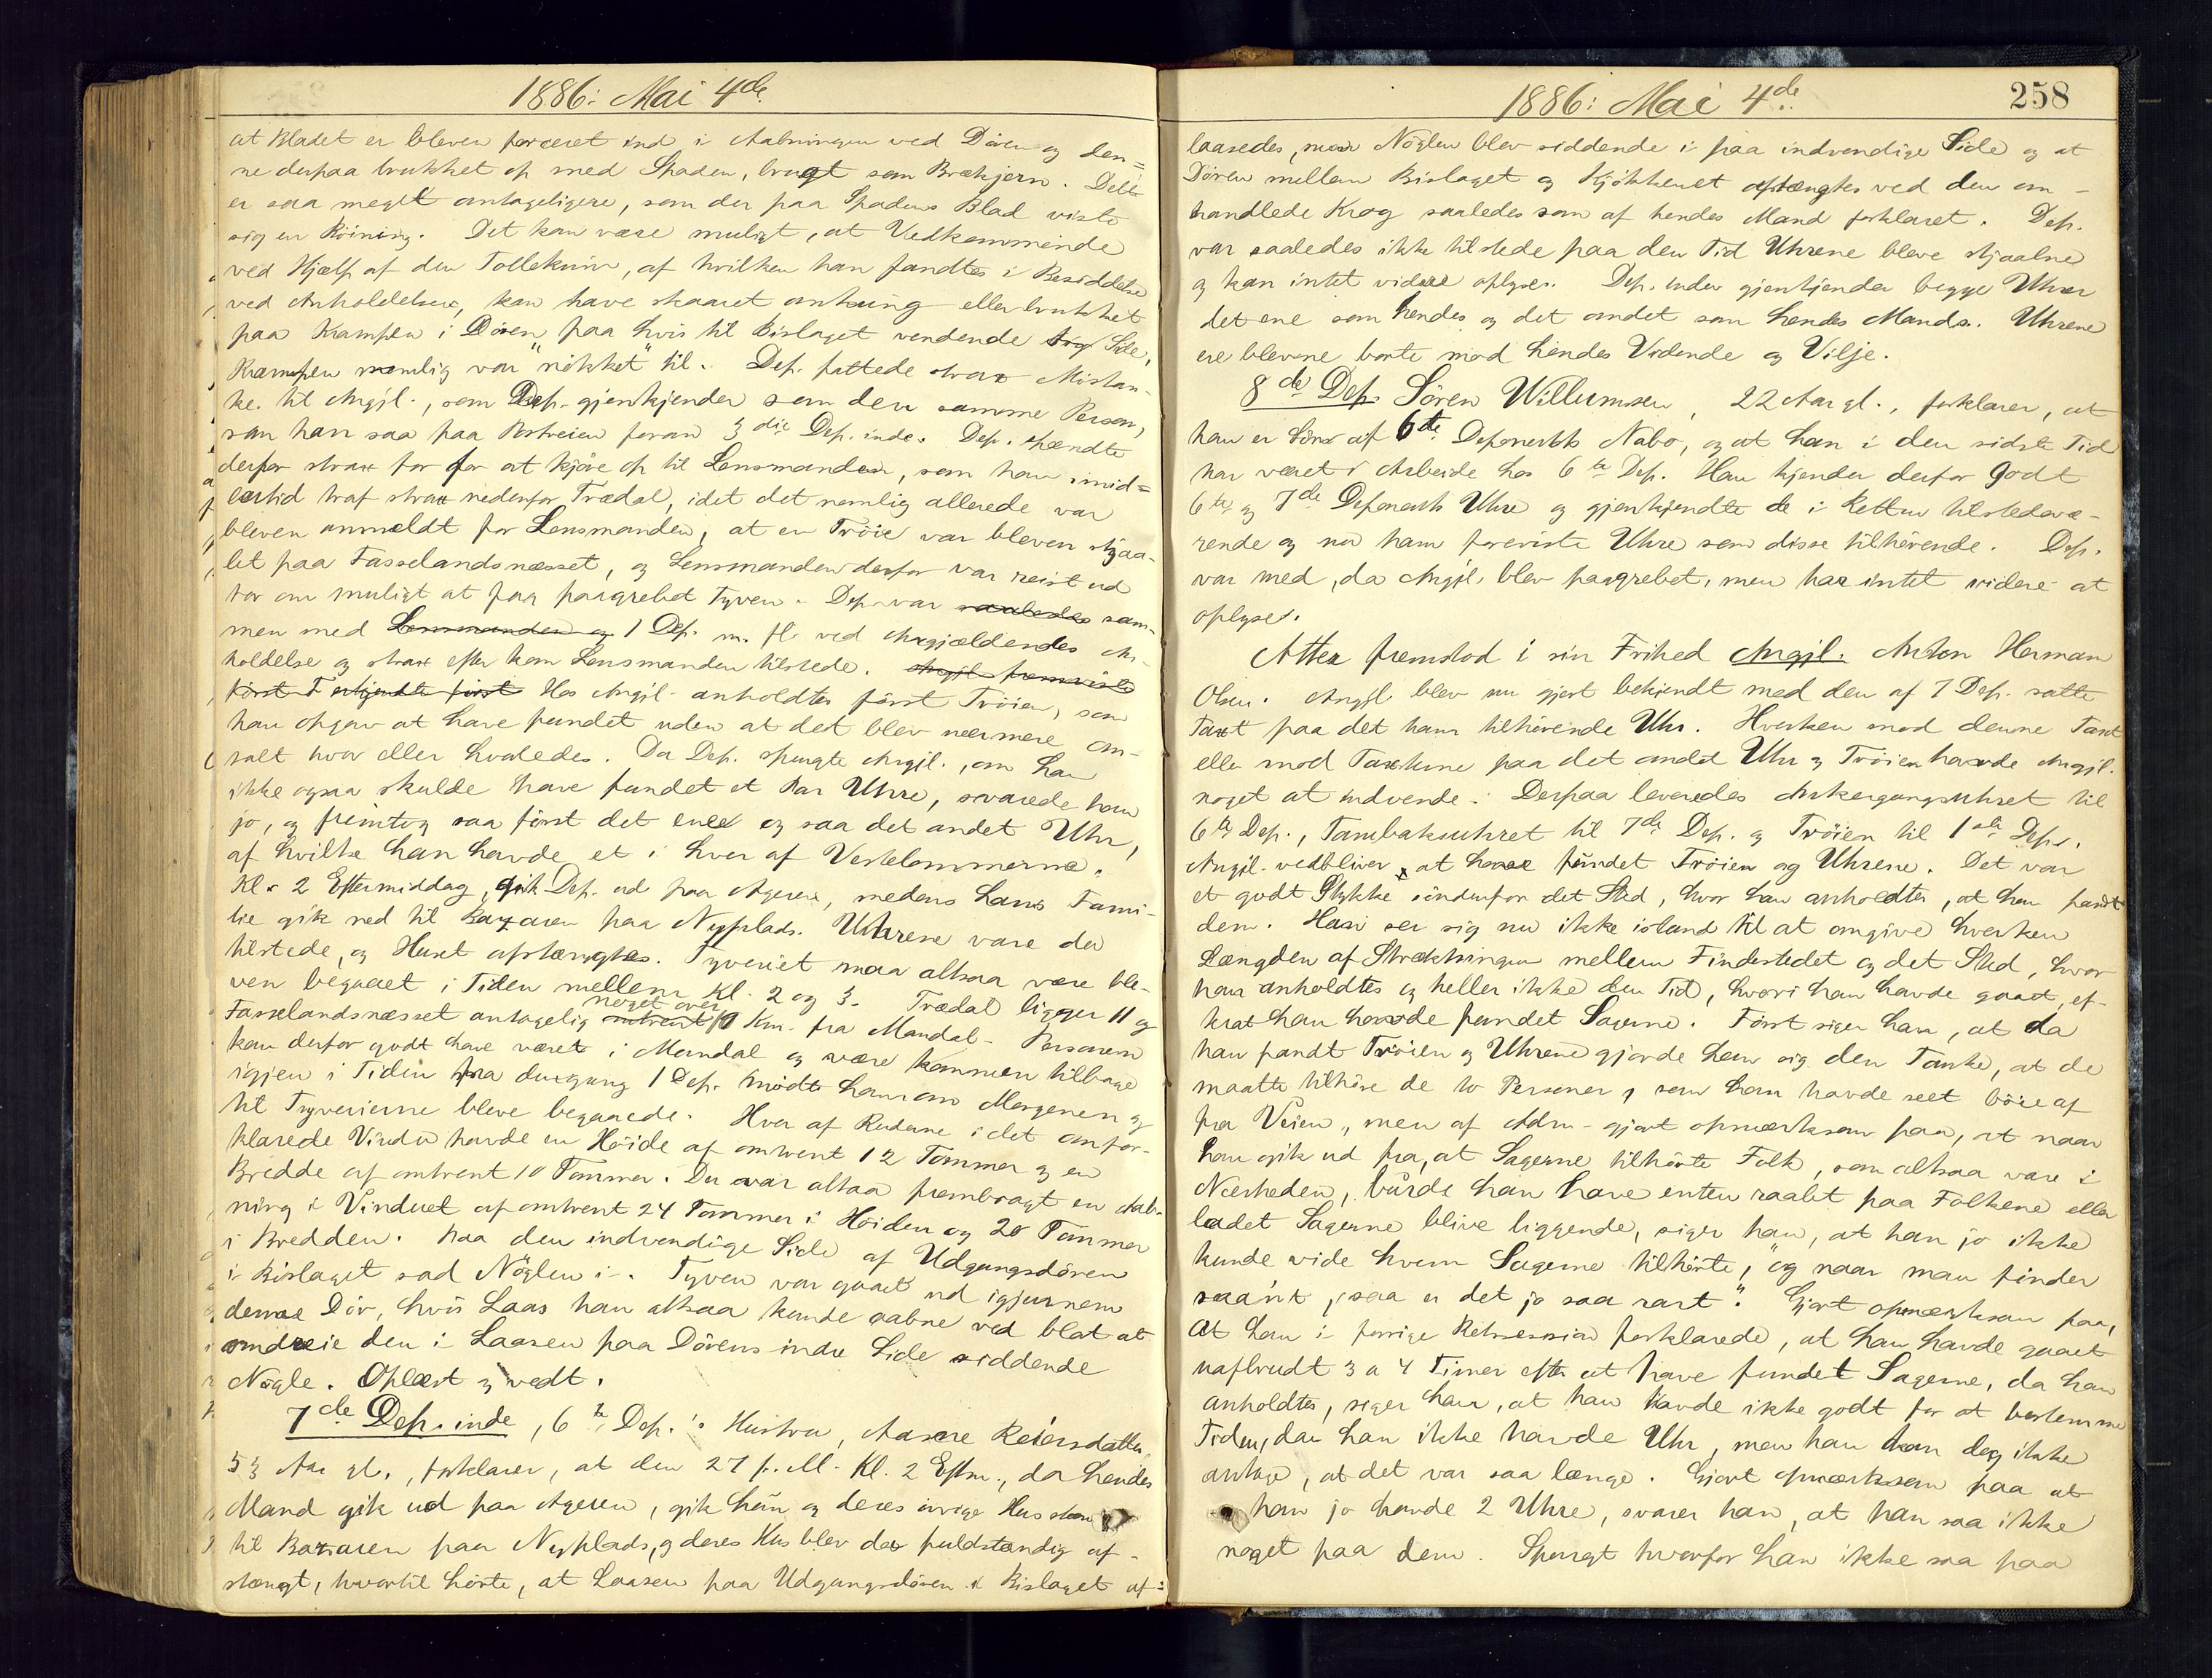 1886: Mai 4de
at Bladet er bleven forceret ind i Aabningen ved Døren og den=
ne derpaa brukket op med Spaden, brugt som Brækjern. Dette
er saa meget antageligere, som der paa Spadens Blad viste
sig en Böining. Det kan være muligt, at Vedkommende
ved Hjælp af den Tollekniv, af hvilken han fandtes i Besiddelse
ved Anholdelsen, kan have skaaret omkring eller brukket
paa Krampen i Dören, paa hvis til Bislaget vendende Side,
Krampen nemlig var "nikket" til. Dep. fattede strax Mistan-
ke til Angjl., som Dep. gjenkjender som den samme Person,
som han saa paa Postveien foran 3die Dep. inde. Dep. spændte
derfor strax for for at kjöre op til Lensmanden, som han imid=
lertid traf strax nedenfor Trædal, idet det nemlig allerede var
bleven anmeldt for Lensmanden, at en Tröie var bleven stjaa-
let paa Fasselandsnæsset, og Lensmanden derfor var reist ud
for om muligt at faa paagrebet Tyven. Dep. var saaledes sam-
men med Lensmanden og 1 Dep. m. fl. ved Angjældendes An-
holdelse og strax efter kom Lensmanden tilstede. Angjl. fremviste
först Hos Angjl. anholdtes först Tröien, som
han opgav at have fundet uden at det blev nærmere om-
talt hvor eller hvorledes. Da Dep. spurgte Angjl., om han
ikke ogsaa skulde have fundet et Par Uhre, svarede han
jo, og fremtog saa först det ene og saa det andet Uhr,
af hvilke han havde et i hver af Vestelommerne.
Kl. 2 Eftermiddag, gik Dep. ud paa Ageren, medens hans Fami-
lie gik ned til Bazaren paa Nyplads. Uhrene vare da
tilstede, og Huset afstængtes. Tyveriet maa altsaa være ble-
ven begaaet i Tiden mellem Kl. 2 og 3. Trædal ligger 11 og
Fasselandsnæsset antagelig omtrent noget over 10 Km. fra Mandal. Personen
kan derfor godt have været i Mandal og være kommen tilbage
igjen i Tiden fra dengang 1 Dep. mødte ham om Morgenen og
til Tyverierne bleve begaaede. Hver af Ruderne i det omfor-
klarede Vindu havde en Höide af omtrent 12 Tommer og en
Bredde af omtrent 10 Tommer. Der var altsaa frembragt en Aab-
ning i Vinduet af omtrent 24 Tommer i Höiden og 20 Tommer
i Bredden. Paa den indvendige Side af Udgangsdören
i Bislaget sad Nöglen i. Tyven var gaaet ud igjennem
denne Dör, hvis Laas han altsaa kunde aabne ved blot at
omdreie den i Laasen paa Dörens indre Side siddende
Nøgle. Oplæst og vedt.
7de Dep. inde, 6te Dep.'s Hustru, Aasne Reiersdatter,
53 Aar gl., forklarer, at den 27 f. M. Kl. 2 Eftm., da hendes
Mand gik ud paa Ageren, gik hun og deres övrige Husstand
til Bazaren paa Nyplads, og deres Hus blev da fuldstændig af-
stængt, hvortil hörte, at Laasen paa Udgangsdören i Bislaget af=
1886: Mai 4de
258
laasedes, men Nöglen blev siddende i paa indvendige Side og at
Dören mellem Bislaget og Kjökkenet afstængtes ved den om-
handlede Krog saaledes som af hendes Mand forklaret. Dep.
var saaledes ikke tilstede paa den Tid Uhrene bleve stjaalne
og kan intet videre oplyse. Dep. inde gjenkjender begge Uhre
det ene som hendes og det andet som hendes Mands. Uhrene
ere blevne borte mod hendes Vidende og Vilje.
8de Dep. Sören Willumsen, 22 Aar gl., forklarer, at
han er Sön af 6te Deponents Nabo, og at han i den sidste Tid
har været i Arbeide hos 6te Dep. Han kjender derfor godt
6te og 7de Deponents Uhre og gjenkjendte de i Retten tilstedevæ-
rende og nu ham foreviste Uhre som disse tilhörende. Dep.
var med, da Angjl. blev paagrebet, men har intet videre at
oplyse.
Atter fremstod i sin Frihed Angjl. Anton Herman
Olsen. Angjl. blev nu gjort bekjendt med den af 7 Dep. satte
Taxt paa det ham tilhörende Uhr. Hverken mod denne Taxt
eller mod Taxterne paa det andet Uhr og Tröien havde Angjl.
noget at indvende. Derpaa leveredes Ankergangsuhret til
6te Dep., Tambaksuhret til 7de Dep. og Tröien til 1ste Dep.
Angjl. vedbliver at have fundet Tröien og Uhrene. Det var
et godt Stykke söndenfor det Sted, hvor han anholdtes, at han fandt
dem. Han ser sig nu ikke istand til at omgive hverken
Længden af Strækningen mellem Findestedet og det Sted, hvor
han anholdtes og heller ikke den Tid, hvori han havde gaaet, ef-
terat han havde fundet Sagerne. Först siger han, at da
han fandt Tröien og Uhrene gjorde han sig den Tanke, at de
maatte tilhöre de to Personer, som han havde seet böie af
fra Veien, men af Adm. gjort opmærksom paa, at naar
han gik ud fra, at Sagerne tilhörte Folk, som altsaa vare i
Nærheden, burde han have enten raabt paa Folkene eller
ladet Sagerne blive liggende, siger han, at han jo ikke
kunde vide hvem Sagerne tilhörte, "og naar man finder
saa'nt, saa er det jo saa rart". Gjort opmærksom paa,
at han i forrige Retssession forklarede, at han havde gaaet
uafbrudt 3 a 4 Timer efter at have fundet Sagerne, da han
anholdtes, siger han, at han havde ikke godt for at bestemme
Tiden, da han ikke havde Uhr, men han kan dog ikke
antage, at det var saa længe. Gjort opmærksom paa at
han jo havde 2 Uhre, svarer han, at han saa ikke
noget paa dem. Spurgt hvorfor han ikke saa paa